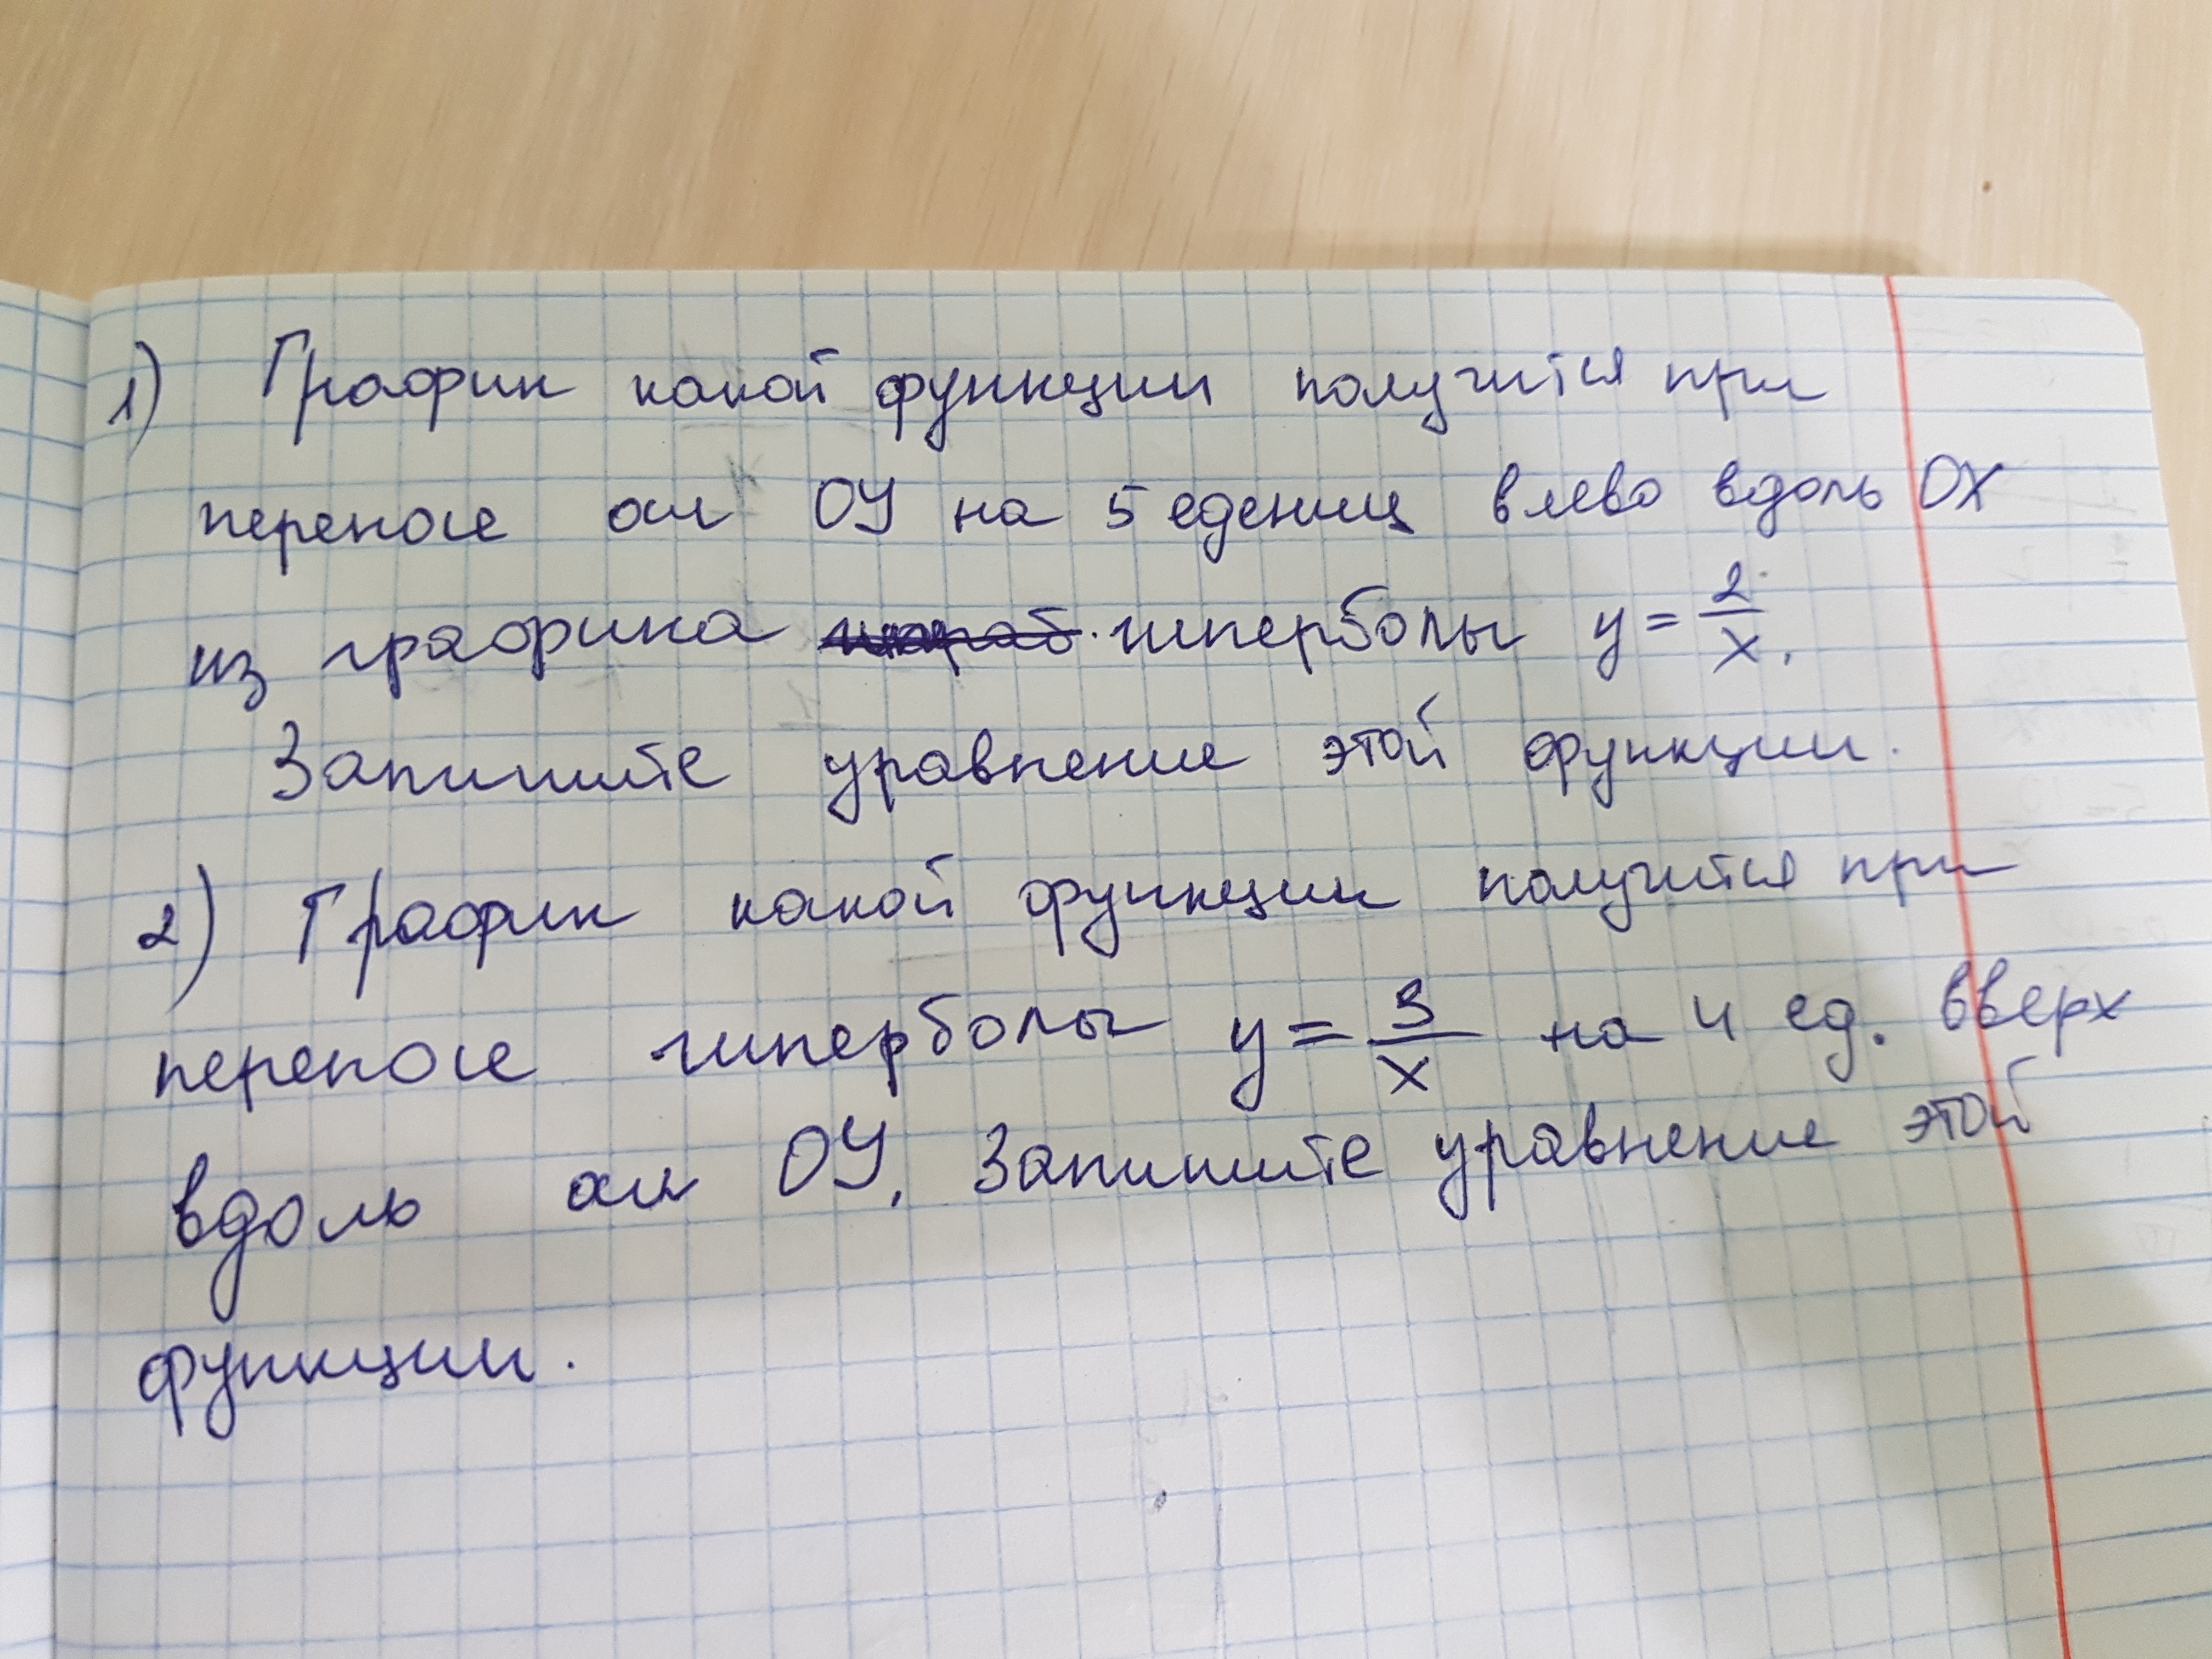 1) График какой функции получится при
переносе оси ОУ на 5 едениц влево вдоль ОХ
из графика гиперболы y = 2/x.
Запишите уравнение этой функции.
2) График какой функции получится при
переносе гиперболы y = 3/x на 4 ед. вверх
вдоль оси ОУ. Запишите уравнение этой
функции.